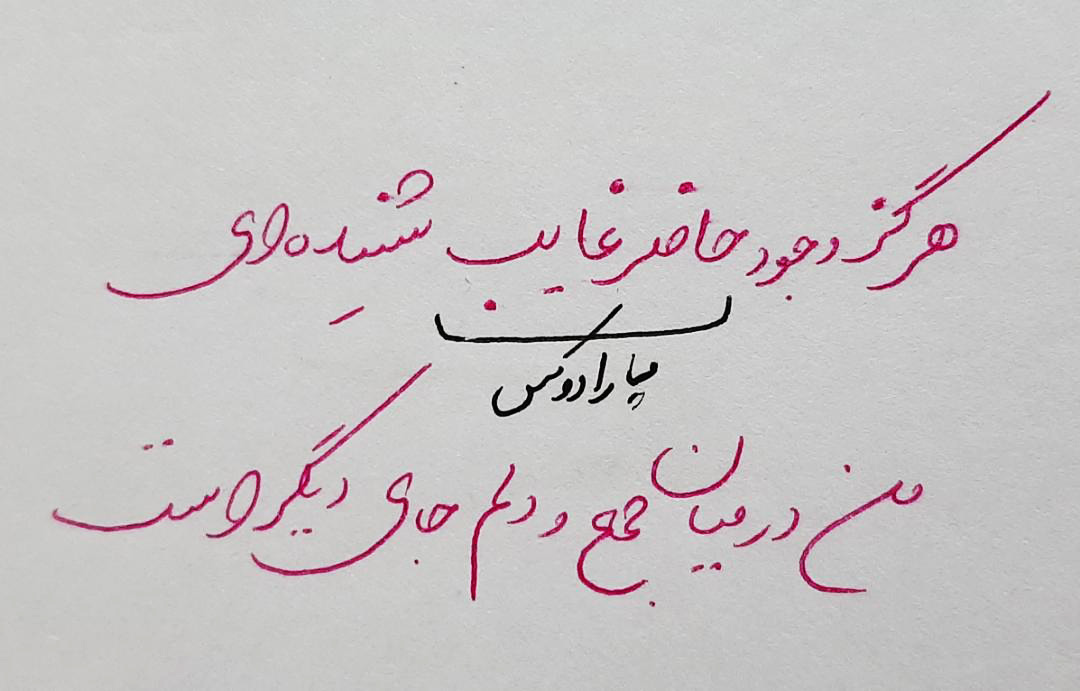 هرگز وجود حاضر غایب شنیده‌ای
پارادوکس
من در میان جمع و دلم جای دیگر است